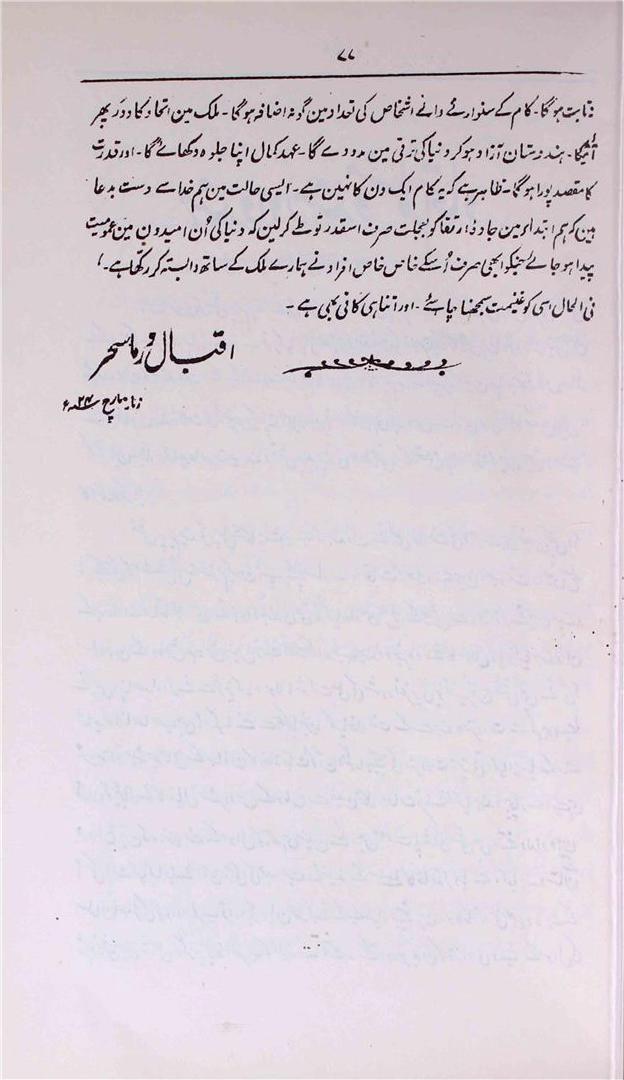 ۷۷
ثابت ہوگا۔ کام کے سنوارنے والے اشخاص کی تعداد مین گونہ اضافہ ہوگا۔ ملک مین اتحاد کا دور پھر
آئیگا۔ ہندوستان آزاد ہوکر دنیا کی ترقی مین مدد دے گا۔ عہد کمال اپنا جلوہ دکھائے گا۔ اور قدرت
کا مقصد پورا ہوگا۔ ظاہر ہے کہ یہ کام ایک دن کا نہین ہے۔ ایسی حالت مین ہم خدا سے دست بدعا
ہین کہ ہم ابتداءً مین جادۂ ارتقا کو بعجلت صرف اسقدر تو طے کرلین کہ دنیا کی اُن امیدون مین عمومیت
پیدا ہو جائے جنکو ابھی صرف اُسکے خاص خاص افراد نے ہمارے ملک کے ساتھ وابستہ کر رکھا ہے۔
فی الحال اسی کو غنیمت سمجھنا چاہئے۔ اور اتنا ہی کافی بھی ہے۔
اقبال ورما سحر
مارچ